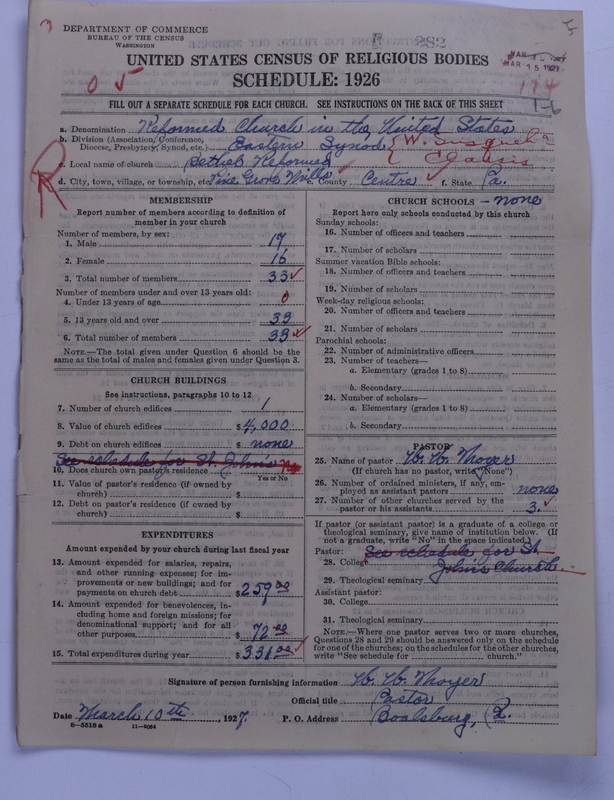 DEPARTMENT OF COMMERCE
BUREAU OF THE CENSUS
WASHINGTON
282
UNITED STATES CENSUS OF RELIGIOUS BODIES
SCHEDULE: 1926
MAR 15 1927
194
1-6
05
FILL OUT A SEPARATE SCHEDULE FOR EACH CHURCH. SEE INSTRUCTIONS ON THE BACK OF THIS SHEET
a. Denomination Reformed Church in the United States
b. Division (Association, Conference, Diocese, Presbytery, Synod, etc.) Eastern Synod
W. Susqueh a
Classis
c. Local name of church Bethel Reformed
d. City, town, village, or township, etc. Pine Grove Mills e. County Centre f. State Pa.
MEMBERSHIP
Report number of members according to definition of member in your church
Number of members, by sex:
1. Male 17
2. Female 16
3. Total number of members 33
Number of members under and over 13 years old:
4. Under 13 years of age 0
5. 13 years old and over 33
6. Total number of members 33
NOTE.—The total given under Question 6 should be the same as the total of males and females given under Question 3.
CHURCH BUILDINGS
See instructions, paragraphs 10 to 12
7. Number of church edifices 1
8. Value of church edifices $4,000
9. Debt on church edifices $ none
See schedule for St. John's No
10. Does church own pastor's residence
Yes or No
11. Value of pastor's residence (if owned by church) $
12. Debt on pastor's residence (if owned by church) $
EXPENDITURES
Amount expended by your church during last fiscal year
13. Amount expended for salaries, repairs, and other running expenses; for improvements or new buildings; and for payments on church debt $259.00
14. Amount expended for benevolences, including home and foreign missions; for denominational support; and for all other purposes $ 72.00
15. Total expenditures during year $331.00
CHURCH SCHOOLS - none
Report here only schools conducted by this church
Sunday schools:
16. Number of officers and teachers
17. Number of scholars
Summer vacation Bible schools:
18. Number of officers and teachers
19. Number of scholars
Week-day religious schools:
20. Number of officers and teachers
21. Number of scholars
Parochial schools:
22. Number of administrative officers
23. Number of teachers—
a. Elementary (grades 1 to 8)
b. Secondary
24. Number of scholars—
a. Elementary (grades 1 to 8)
b. Secondary
PASTOR
25. Name of pastor W. W. Moyer
(If church has no pastor, write "None")
26. Number of ordained ministers, if any, employed as assistant pastors none
27. Number of other churches served by the pastor or his assistants 3
If pastor (or assistant pastor) is a graduate of a college or theological seminary, give name of institution below. (If not a graduate, write "No" in the space indicated)
Pastor: See schedule for St.
28. College John's Church
29. Theological seminary
Assistant pastor:
30. College
31. Theological seminary
NOTE.—Where one pastor serves two or more churches, Questions 28 and 29 should be answered only on the schedule for one of the churches; on the schedules for the other churches, write "See schedule for church."
Signature of person furnishing information W. W. Moyer
Official title Pastor
Date March 10th, 1927. P. O. Address Boalsburg, Pa.
8-5518a 11-9054